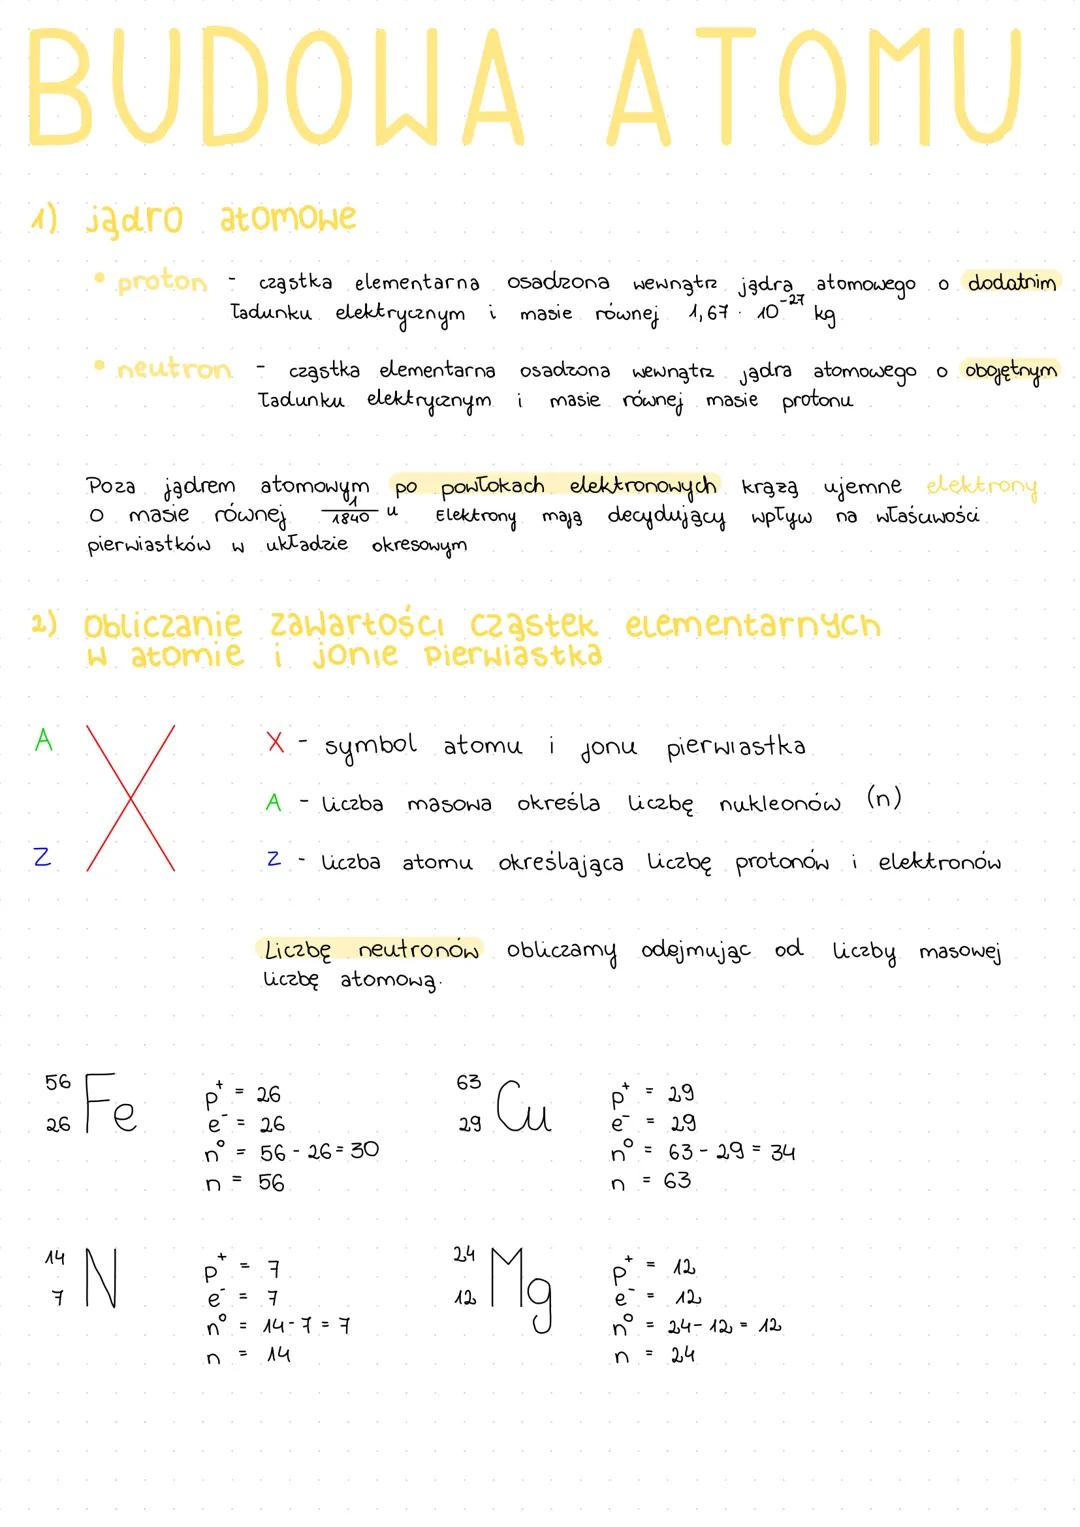 BUDOWA ATOMU
1) jądro atomowe
• proton - cząstka elementarna osadzona wewnątrz jądra atomowego o dodatnim
ładunku elektrycznym i masie równej 1,67 · 10⁻²⁷ kg
• neutron - cząstka elementarna osadzona wewnątrz jądra atomowego o obojętnym
ładunku elektrycznym i masie równej masie protonu
Poza jądrem atomowym po powłokach elektronowych krążą ujemne elektrony
o masie równej 1/1840 u Elektrony mają decydujący wpływ na właściwości
pierwiastków w układzie okresowym
2) Obliczanie zawartości cząstek elementarnych
w atomie i jonie pierwiastka
A
X
Z
X - symbol atomu i jonu pierwiastka
A - liczba masowa określa liczbę nukleonów (n)
Z - liczba atomu określająca liczbę protonów i elektronów
Liczbę neutronów obliczamy odejmując od liczby masowej
liczbę atomową.
56
26 Fe
p⁺ = 26
e⁻ = 26
n⁰ = 56 - 26 = 30
n = 56
63
29 Cu
p⁺ = 29
e⁻ = 29
n⁰ = 63 - 29 = 34
n = 63
14
7 N
p⁺ = 7
e⁻ = 7
n⁰ = 14 - 7 = 7
n = 14
24
12 Mg
p⁺ = 12
e⁻ = 12
n⁰ = 24 - 12 = 12
n = 24